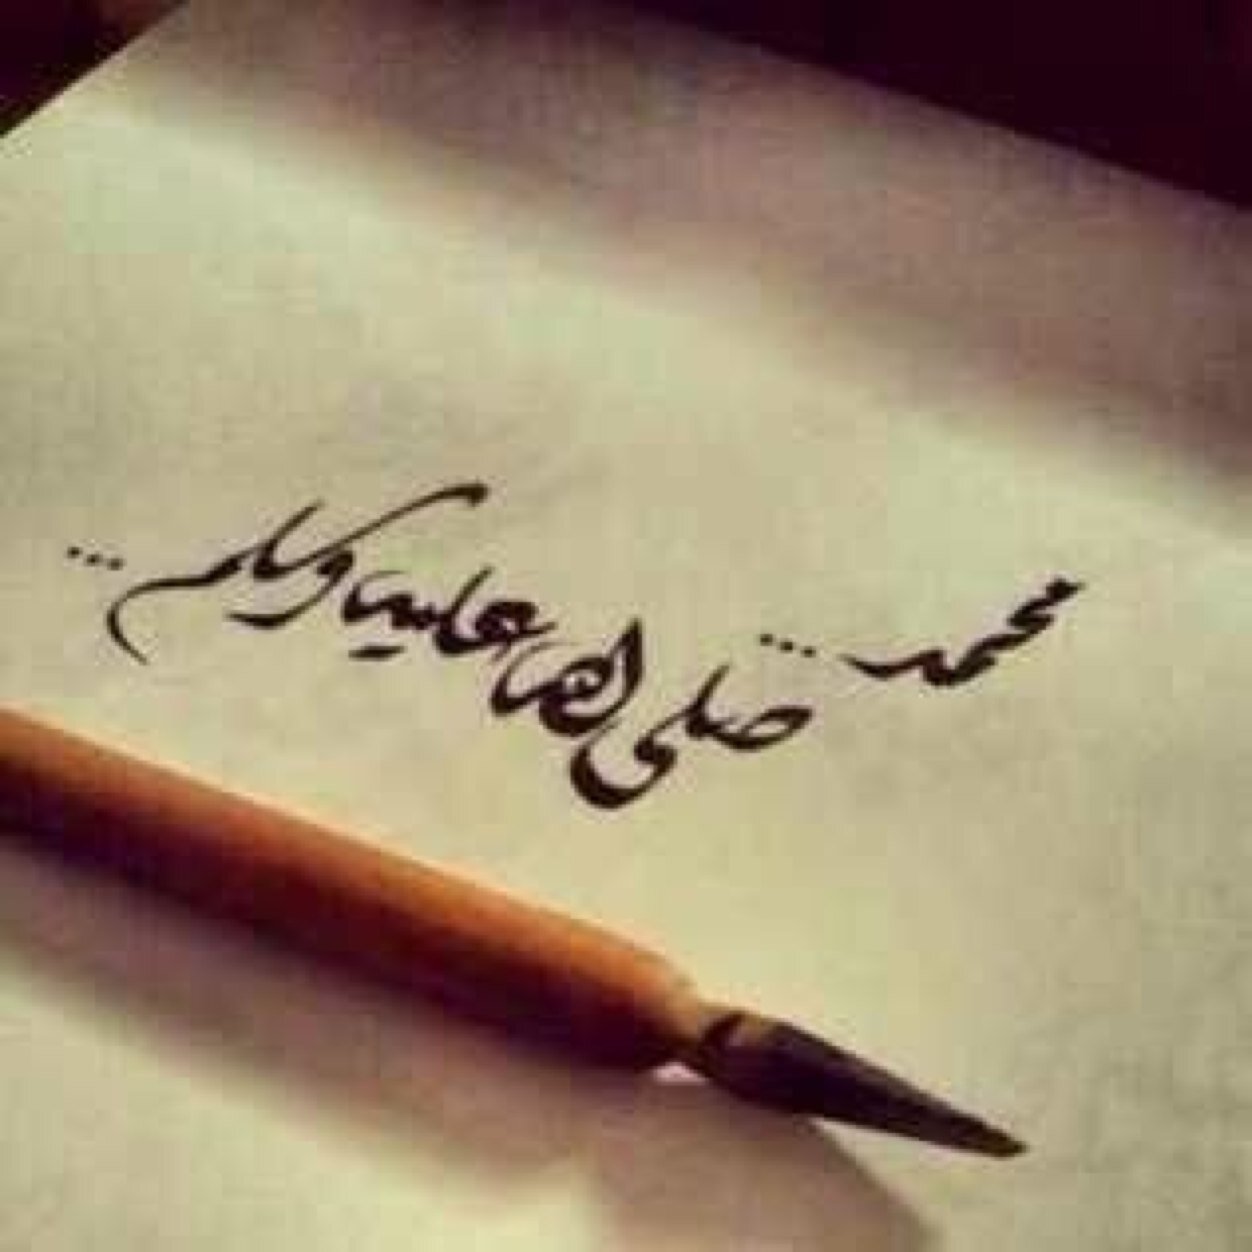 محمد ... صلى الله عليه وسلم ...